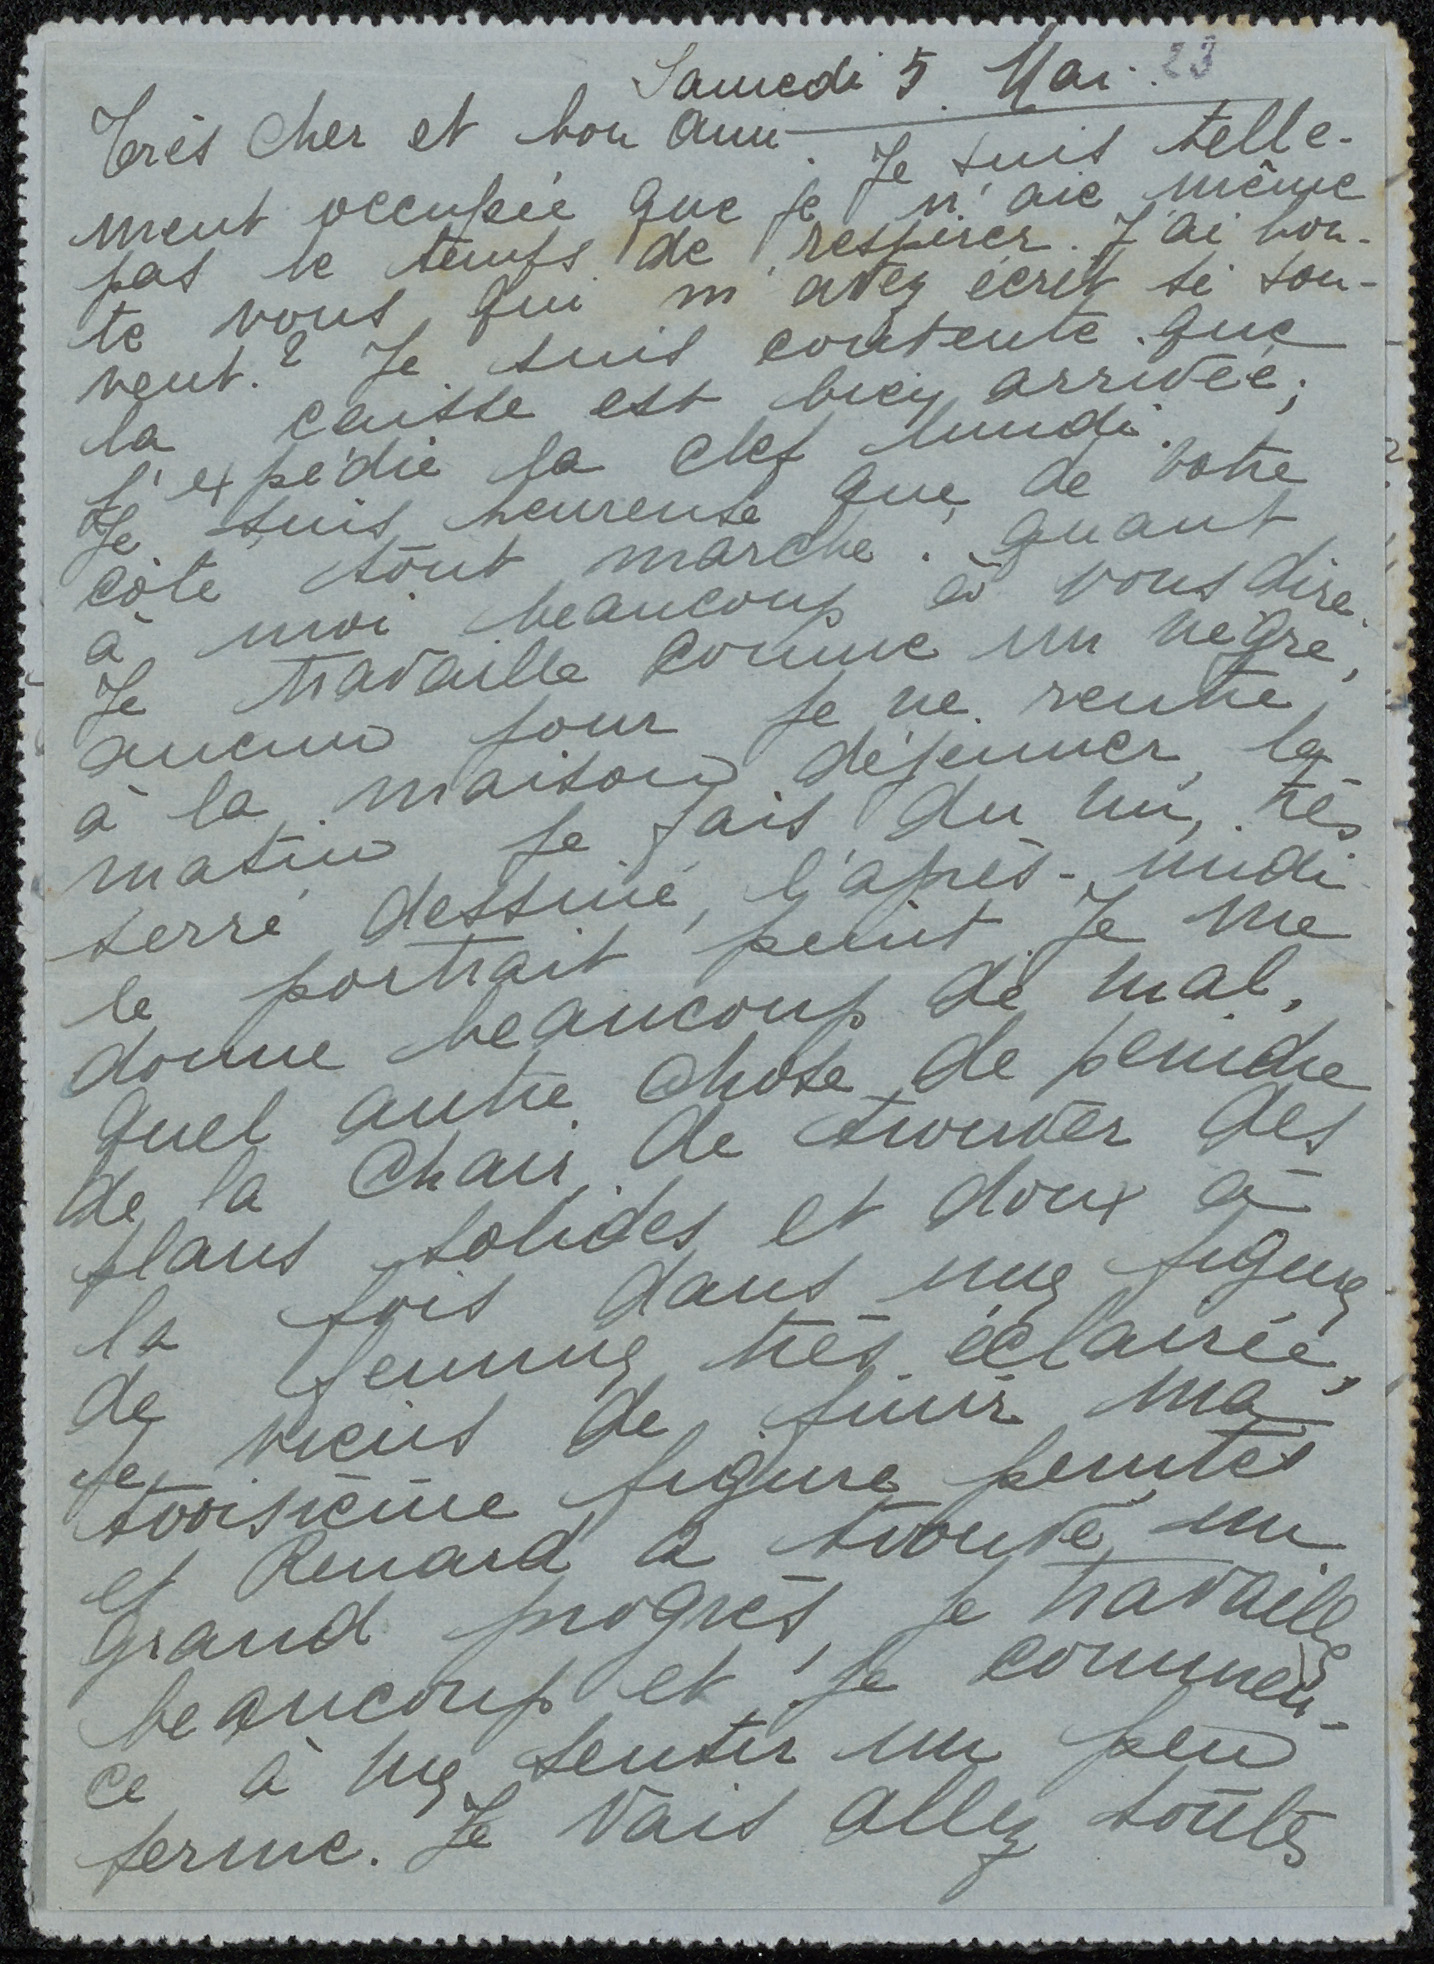 Samedi 5 Mai. 23
Très cher et bon ami. Je suis telle-
ment occupée que je n'aie même
pas le temps de respirer. J'ai hon-
te vous qui m'avez écrit si sou-
vent.? Je suis contente que
la caisse est bien arrivée;
j'expédie la clef lundi.
Je suis heureuse que de votre
côté tout marche. Quant
à moi beaucoup à vous dire.
Je travaille comme un nègre,
aucun jour je ne rentre
à la maison déjeuner, le
matin je fais du nu, très
serré dessiné, l'après-midi
le portrait peint. Je me
donne beaucoup de mal,
quel autre chose de peindre
de la chair, de trouver des
plans solides et doux à
la fois dans une figure
de femme très éclairée,
je viens de finir ma
troisième figure peintes
et Renard a trouvé un
grand progrès, je travaille
beaucoup et je commen-
ce à me sentir un peu
ferme. Je vais allez toutes